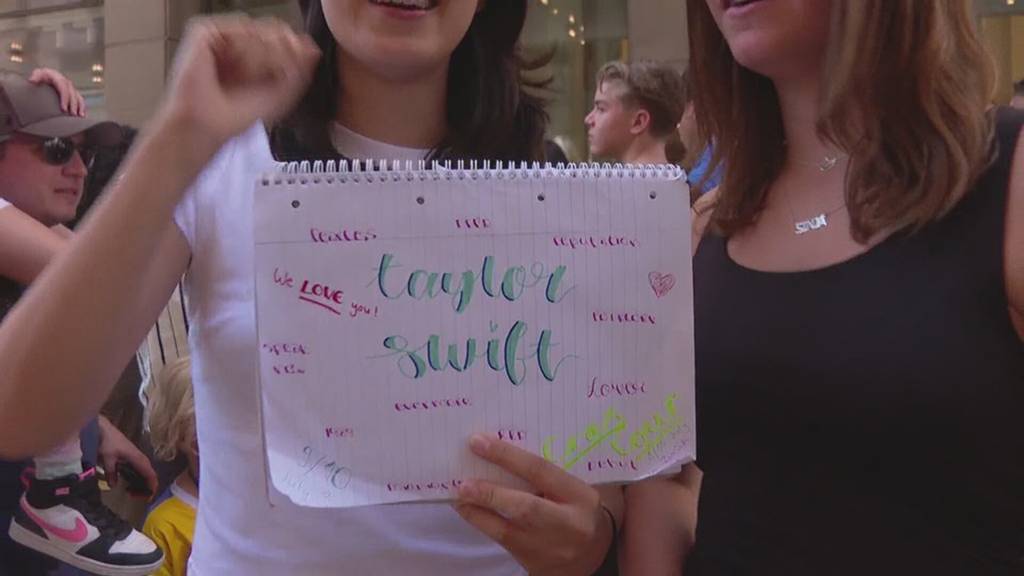 RED
fearless
reputation
We LOVE you!
taylor
folklore
swift
speak
now
Lover
evermore
1989
RED
debut
9/10